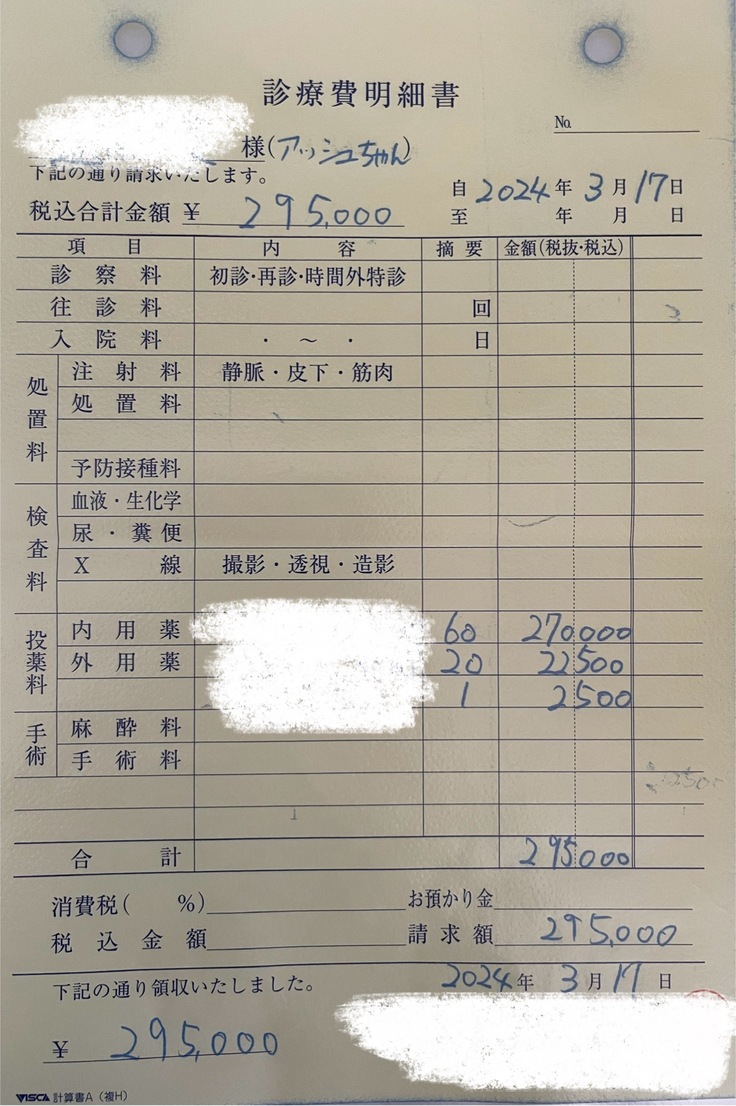 診療費明細書
No.
様(アッシュちゃん)
下記の通り請求いたします。
自 2024年 3月17日
税込合計金額 ¥ 295,000
至 年 月 日
項目 内容 摘要 金額(税抜・税込)
診察料 初診・再診・時間外特診
往診料 回
入院料 ・ ~ ・ 日
処置料
注射料 静脈・皮下・筋肉
処置料
予防接種料
検査料
血液・生化学
尿・糞便
X線 撮影・透視・造影
投薬料
内用薬 60 270,000
外用薬 20 22500
1 2500
手術
麻酔料
手術料
合計 295000
消費税( %) お預かり金
税込金額 請求額 295,000
下記の通り領収いたしました。 2024年 3月17日
¥ 295,000
VISCA 計算書A(複H)